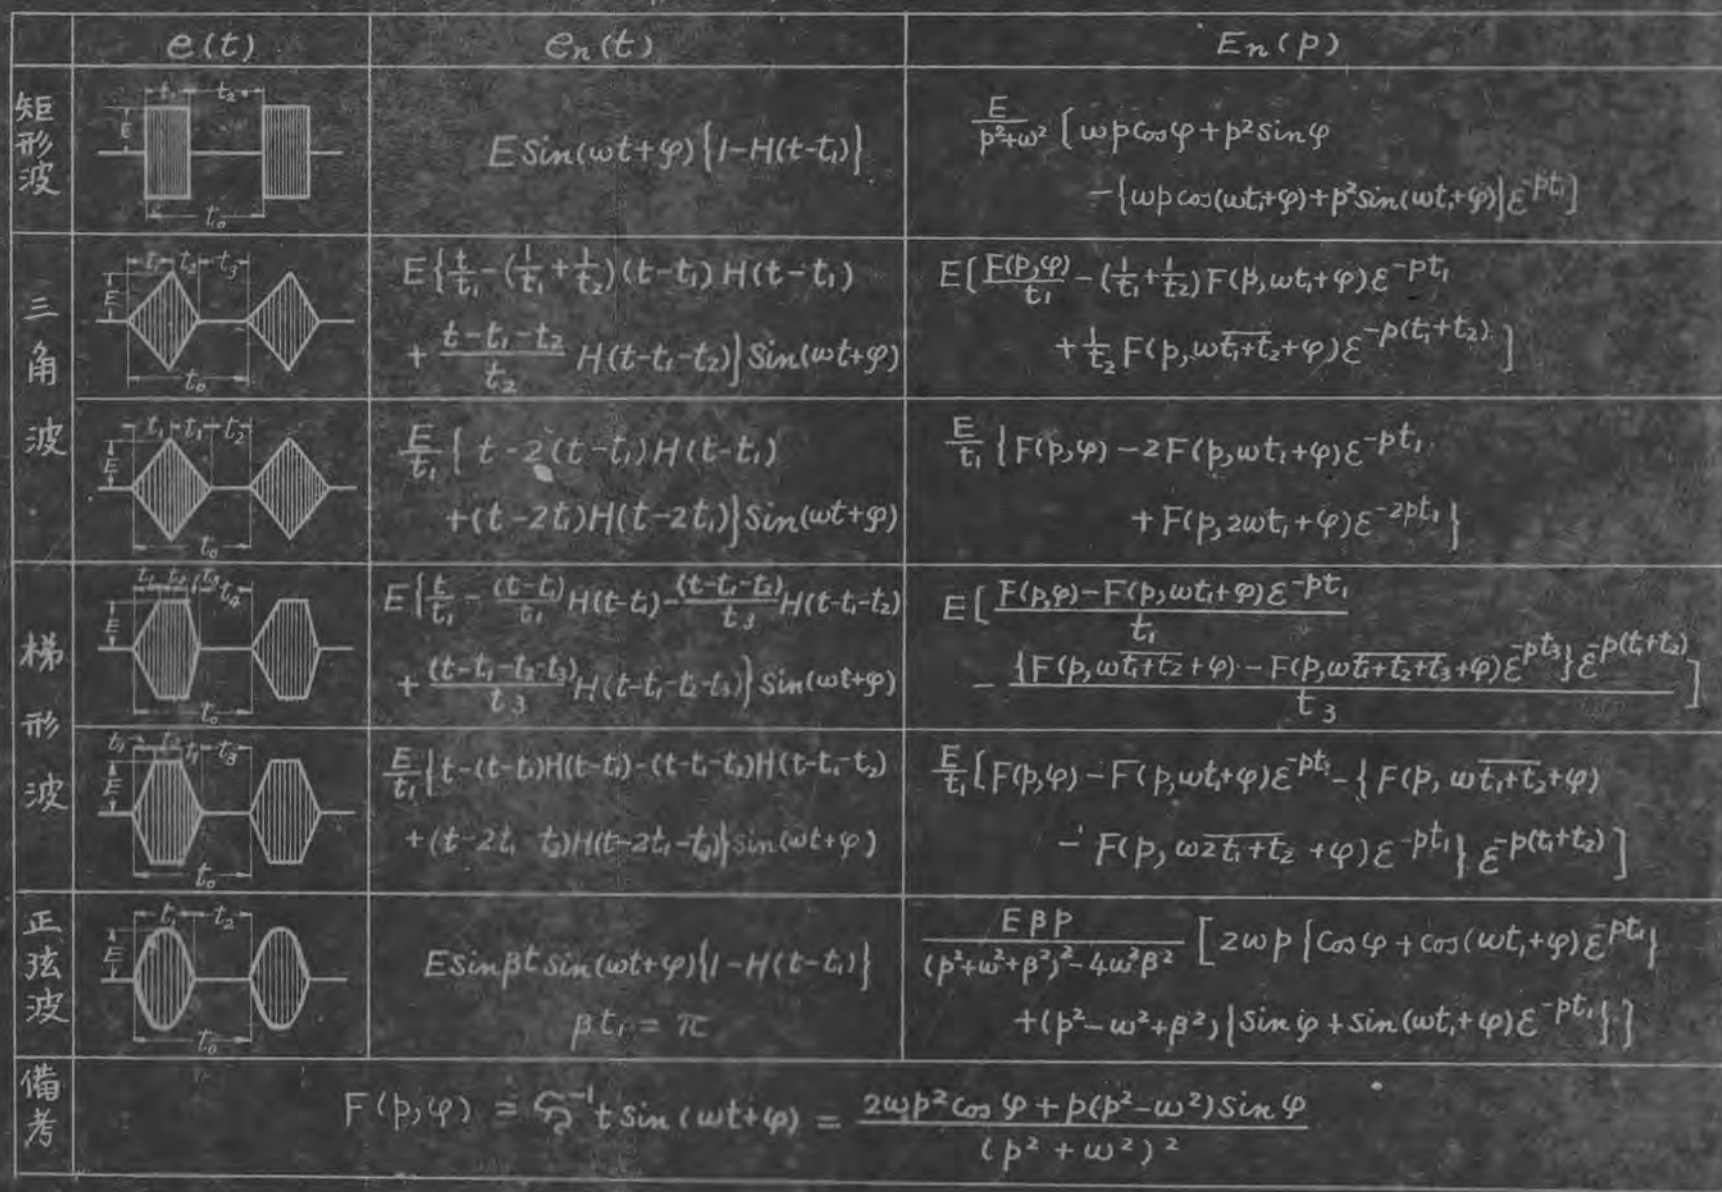 e(t) e_n(t) E_n(p)
矩形波
t₁ t₂
E
t₀
E Sin(ωt+φ){1-H(t-t₁)}
E/(p²+ω²) [ωp cosφ + p² sinφ
-{ωp cos(ωt₁+φ)+p² sin(ωt₁+φ)}ε^{-pt₁}]
三角波
t₁ t₂ t₃
E
t₀
E{t/t₁-(1/t₁+1/t₂)(t-t₁)H(t-t₁)
+(t-t₁-t₂)/t₂ H(t-t₁-t₂)}Sin(ωt+φ)
E[F(p,φ)/t₁-(1/t₁+1/t₂)F(p,ωt₁+φ)ε^{-pt₁}
+1/t₂ F(p,ω\overline{t₁+t₂}+φ)ε^{-p(t₁+t₂)}]
t₁ t₁ t₂
E
t₀
E/t₁{t-2(t-t₁)H(t-t₁)
+(t-2t₁)H(t-2t₁)}Sin(ωt+φ)
E/t₁{F(p,φ)-2F(p,ωt₁+φ)ε^{-pt₁}
+F(p,2ωt₁+φ)ε^{-2pt₁}}
梯形波
t₁ t₂ t₃ t₄
E
t₀
E{t/t₁-(t-t₁)/t₁ H(t-t₁)-(t-t₁-t₂)/t₃ H(t-t₁-t₂)
+(t-t₁-t₂-t₃)/t₃ H(t-t₁-t₂-t₃)}Sin(ωt+φ)
E[(F(p,φ)-F(p,ωt₁+φ)ε^{-pt₁})/t₁
-{F(p,ω\overline{t₁+t₂}+φ)-F(p,ω\overline{t₁+t₂+t₃}+φ)ε^{-pt₃}}ε^{-p(t₁+t₂)}/t₃]
t₁ t₂ t₁ t₃
E
t₀
E/t₁{t-(t-t₁)H(t-t₁)-(t-t₁-t₂)H(t-t₁-t₂)
+(t-2t₁ t₂)H(t-2t₁-t₂)}sin(ωt+φ)
E/t₁[F(p,φ)-F(p,ωt₁+φ)ε^{-pt₁}-{F(p,ω\overline{t₁+t₂}+φ)
-F(p,ω\overline{2t₁+t₂}+φ)ε^{-pt₁}}ε^{-p(t₁+t₂)}]
正弦波
t₁ t₂
E
t₀
E sinβt sin(ωt+φ){1-H(t-t₁)}
βt₁=π
Eβp/((p²+ω²+β²)²-4ω²β²) [2ωp{cosφ+cos(ωt₁+φ)ε^{-pt₁}}
+(p²-ω²+β²){Sinφ+Sin(ωt₁+φ)ε^{-pt₁}}]
備考
F(p,φ) = ⁻¹t Sin(ωt+φ) = (2ωp² cosφ+p(p²-ω²)Sinφ)/(p²+ω²)²